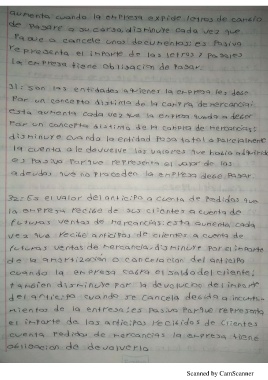 aumenta cuando la empresa expide letras de cambio
de pagare a su cargo, disminuye cada vez que
pague o cancele unos documentos: es pasiva
representa el importe de las letras y pagares
la empresa tiene obligacion de pagar.
31: son las entidades al tener la empresa les debe
Por un concepto distinto de la compra de mercancia:
Esta aumenta cada vez que la entrega queda a deber
Por un concepto distinto de la compra de mercancias;
disminuye cuando la entidad paga total o parcialmente
la cuenta o le devuelve los valores que había
es Pasiva porque representa el valor de los
adeudos que no proceden la empresa debe pagar.
32: Es el valor del anticipo a cuenta de pedidos que
la empresa recibe de sus clientes a cuenta de
futuras ventas de mercancias: esta aumenta cada
vez que recibe anticipos de clientes a cuenta de
futuras ventas de mercancia. disminuye por el importe
de la amortización o cancelacion del anticipo
cuando la empresa cobra el saldo del cliente;
tambien disminuye por la devolucion del importe
del anticipo cuando se cancela debido a incumpli-
mientos de la entrega: es pasiva porque representa
el importe de los anticipos recibidos de clientes
cuenta pedidos de mercancias la empresa tiene
obligación de devolverla
Scanned by CamScanner